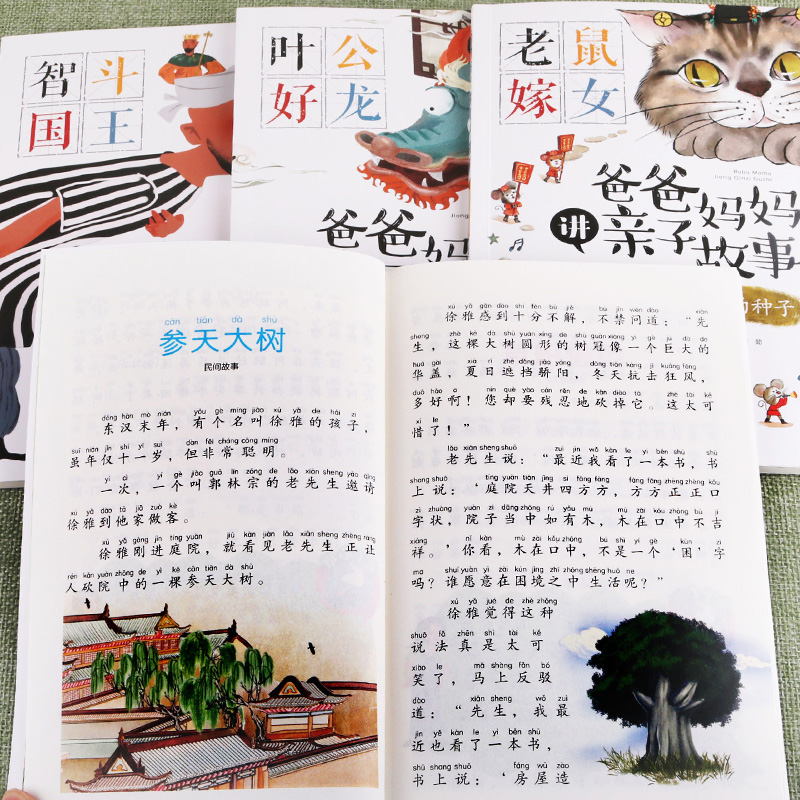 智斗
国王
叶公
好龙
爸爸妈
老鼠
嫁女
Baba Mama
Jiang Qinzi Gushi
爸爸妈妈
讲亲子故事
的种子
cān tiān dà shù
参天大树
民间故事
dōng hàn mò nián yǒu gè míng jiào xú yǎ de hái zi
东汉末年，有个名叫徐雅的孩子，
suī nián jǐn shí yī suì dàn fēi cháng cōng míng
虽年仅十一岁，但非常聪明。
yí cì yí gè jiào guō lín zōng de lǎo xiān sheng yāo qǐng
一次，一个叫郭林宗的老先生邀请
xú yǎ dào tā jiā zuò kè
徐雅到他家做客。
xú yǎ gāng jìn tíng yuàn jiù kàn jiàn lǎo xiān sheng zhèng ràng
徐雅刚进庭院，就看见老先生正让
rén kǎn yuàn zhōng de yì kē cān tiān dà shù
人砍院中的一棵参天大树。
xú yǎ gǎn dào shí fēn bù jiě bù jīn wèn dào xiān
徐雅感到十分不解，不禁问道：“先
sheng zhè kē dà shù yuán xíng de shù guān xiàng yí gè jù dà de
生，这棵大树圆形的树冠像一个巨大的
huá gài xià rì zhē dǎng jiāo yáng dōng tiān kàng jī kuáng fēng
华盖，夏日遮挡骄阳，冬天抗击狂风，
duō hǎo a nín què yào cán rěn de kǎn diào tā zhè tài kě
多好啊！您却要残忍地砍掉它。这太可
xī le
惜了！”
lǎo xiān sheng shuō zuì jìn wǒ kàn le yì běn shū shū
老先生说：“最近我看了一本书，书
shang shuō tíng yuàn tiān jǐng sì fāng fāng fāng fāng zhèng zhèng kǒu
上说：‘庭院天井四方方，方方正正口
zì zhuàng yuàn zi dāng zhōng rú yǒu mù mù zài kǒu zhōng bù jí
字状，院子当中如有木，木在口中不吉
xiáng nǐ kàn mù zài kǒu zhōng bú shì yí gè kùn zì
祥。’你看，木在口中，不是一个‘困’字
ma shuí yuàn yì zài kùn jìng zhī zhōng shēng huó ne
吗？谁愿意在困境之中生活呢？”
xú yǎ jué de zhè zhǒng
徐雅觉得这种
shuō fǎ zhēn shì tài kě
说法真是太可
xiào le mǎ shàng fǎn bó
笑了，马上反驳
dào xiān sheng wǒ zuì
道：“先生，我最
jìn yě kàn le yì běn shū
近也看了一本书，
shū shang shuō fáng wū zào
书上说：‘房屋造